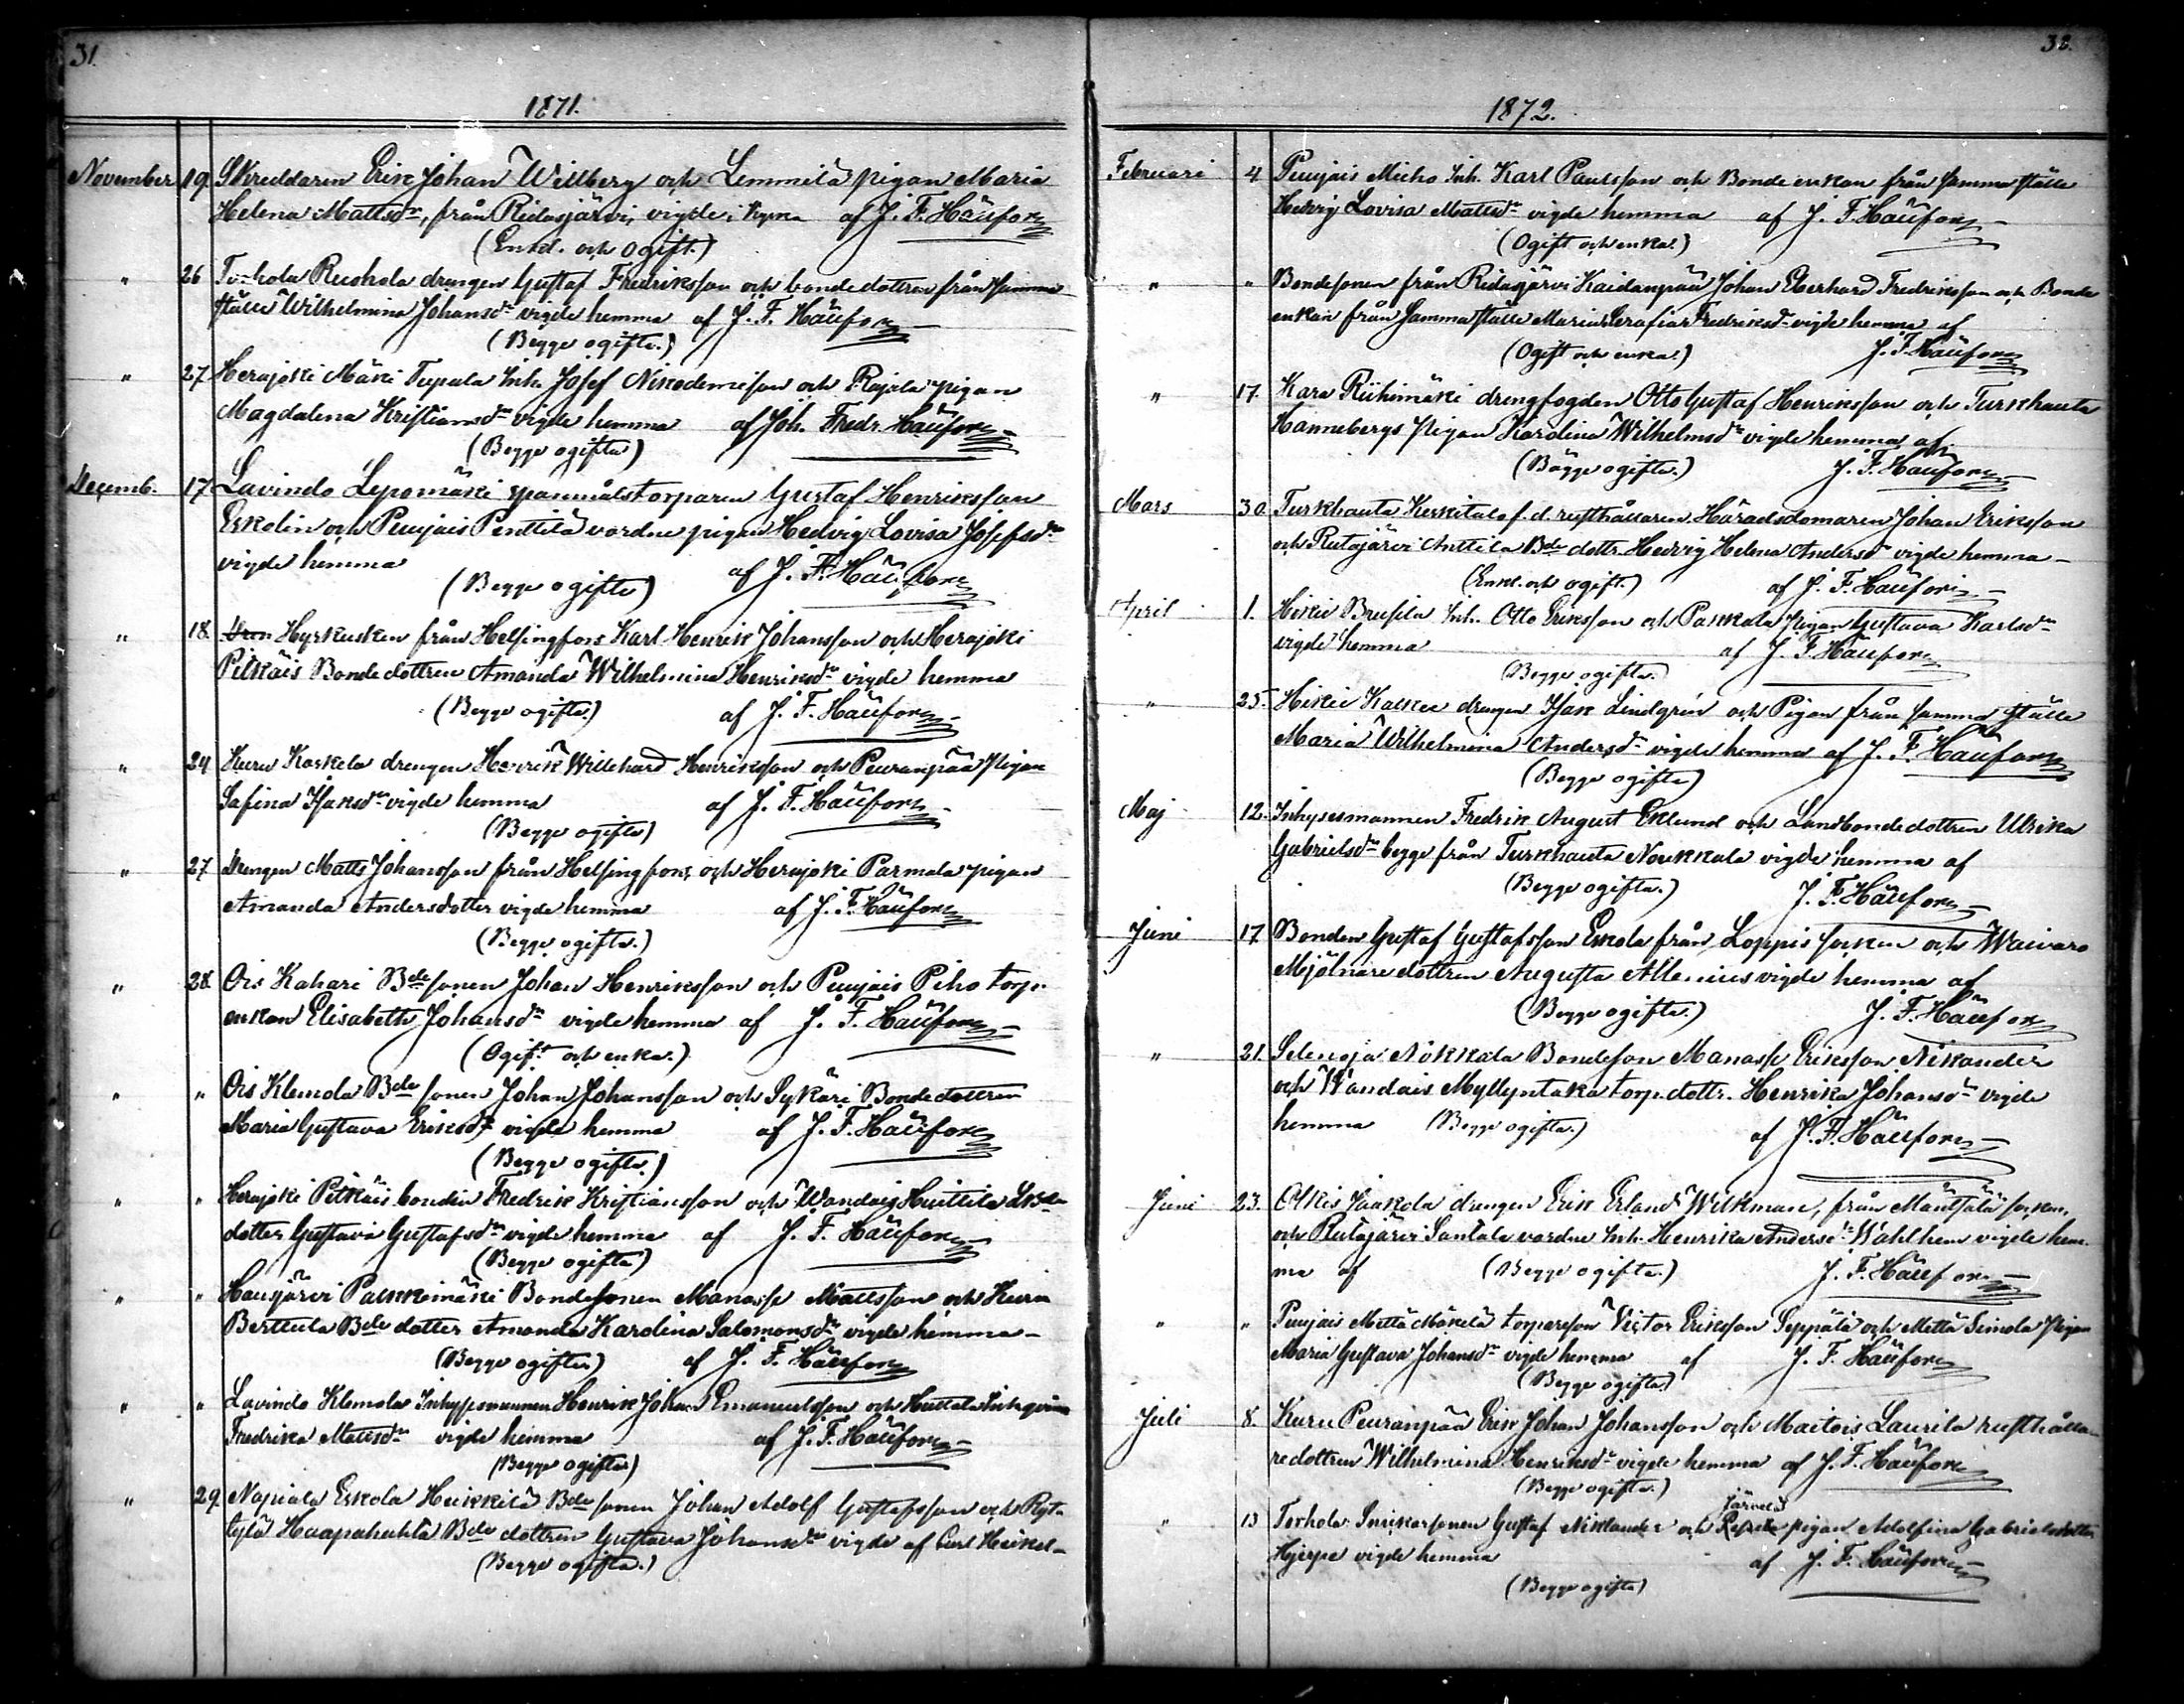 31.
1871.
November 19. Skreddaren Erik Johan Willberg och Lemmilä pigan Maria
Helena Mattsdr, från Ridasjärvi, vigde i kyrka af J. F. Häufors
(Enkl. och Ogift.)
" 26 Torhola Ruohola drengen Gustaf Fredriksson och bondedottren från samma
ställe Wilhelmina Johansdr vigde hemma af J. F. Häufors
(Begge ogifta.)
" 27 Herajoki Mäki Tupala Inh. Josef Nikodemisson och Rajala pigan
Magdalena Kristiansdr vigde hemma af Joh. Fredr. Häufors
(Begge ogifta)
Decemb. 17 Lavindo Lepomäki spanmålstorparen Gustaf Henriksson
Eskolin och Puujais Penttilä vardne pigan Hedvig Lovisa Josefsdr
vigde hemma af J. F. Häufors
(Begge ogifta)
" 18. Hyrkusken från Helsingfors Karl Henrik Johansson och Herajoki
Pitkäis Bonde dottren Amanda Wilhelmina Henriksdr vigde hemma
(Begge ogifta.) af J. F. Häufors
" 24 Kuru Koskela drengen Henrik Willehard Henriksson och Peuranpää pigan
Safina Isaksdr vigde hemma af J. F. Häufors
(Begge ogifta)
" 27 Drengen Matts Johansson från Helsingfors och Herajoki Parmala pigan
Amanda Andersdotter vigde hemma af J. F. Häufors
(Begge ogifta.)
" 28. Ois Kahari Bde sonen Johan Henriksson och Puujais Piho torp.
enkan Elisabeth Johansdr vigde hemma af J. F. Häufors
(Ogift och enka.)
" " Ois Klemola Bde sonen Johan Johansson och Sykäri Bondedottren
Maria Gustava Eriksdr vigde hemma af J. F. Häufors
(Begge ogifta.)
" " Herajoki Pitkäis bonden Fredrik Kristiansson och Wandais Huittila
dotter Gustava Gustafsdr vigde hemma af J. F. Häufors
(Begge ogifta)
" " Hausjärvi Palkkimäki Bondesonen Manasse Mattsson och Kuru
Berttula Bde dotter Amanda Karolina Salomonsdr vigde hemma
(Begge ogifta) af J. F. Häufors
" " Lavindo Klemola Inhysesmannen Henrik Johan Emanuelsson och
Fredrika Mattsdr vigde hemma af J. F. Häufors
(Begge ogifta)
" 29. Napiala Eskola Heikkilä Bde sonen Johan Adolf Gustafsson och Ryt-
tylä Haapahuhta Bde dottren Gustava Johansdr vigde af Carl Heikel
(Begge ogifta.)
32.
1872.
Februari 4 Puujais Micho Inh. Karl Paulsson och Bonde enkan från samma ställe
Hedvig Lovisa Mattsdr vigde hemma af J. F. Häufors
(Ogift och enka.)
" " Bondesonen från Ridasjärvi Kaidanpää Johan Eberhard Fredriksson och Bonde
enkan från samma ställe Maria Serafia Fredriksdr vigde hemma af
(Ogift och enka.) J. F. Häufors
" 17. Kara Riihimäki drengfogden Otto Gustaf Henriksson och Turkhauta
Hannebergs pigan Karolina Wilhelmsdr vigde hemma af
(Bägge ogifta.) J. F. Häufors
Mars 30. Turkhauta Kerkitalo f. d. rusthållaren Häradsdomaren Johan Eriksson
och Rutajärvi Anttila Bde dottr. Hedvig Helena Andersdr vigde hemma
(Enkl. och ogift.) af J. F. Häufors
April 1. Hikiä Brusila Inh. Otto Eriksson och Paskala pigan Gustava Karlsdr
vigde hemma af J. F. Häufors
(Begge ogifta.
" 25. Hikiä drengen Isak Lindgrén och Pigan från samma ställe
Maria Wilhelmina Andersdr vigde hemma af J. F. Häufors
(Begge ogifta)
Maj 12. Inhysesmannen Fredrik August Eklund och Landbondedottren Ulrika
Gabrielsdr begge från Turkhauta Noukkala vigde hemma af
(Begge ogifta.) J. F. Häufors
Juni 17 Bonden Gustaf Gustafsson Eskola från Loppis socken och Waivaro
Mjölnare dottren Augusta Allenius vigde hemma af
(Begge ogifta.) J. F. Häufors
" 21. Selenoja Nökkala Bondeson Manasse Eriksson Nikander
och Wandais Myllyntaka torp. dottr. Henrika Johansdr vigde
hemma (Begge ogifta.) af J. F. Häufors
Juni 23. Olkis Jaakola drengen Erik Erland Wilkman, från Mäntsälä socken,
och Rutajärvi Santala vardne Inh. Henrika Andersdr Wahlhem vigde hem-
ma af (Begge ogifta.) J. F. Häufors
" " Puujais Mettä Mäkelä torpareson Victor Eriksson Seppälä och Mettä Simola pigan
Maria Gustava Johansdr vigde hemma af J. F. Häufors
(Begge ogifta.)
Juli 8. Kuru Peuranpää Erik Johan Johansson och Maitois Laurila rusthålla-
redottren Wilhelmina Henriksdr vigde hemma af J. F. Häufors
(Begge ogifta.)
" 13 Torhola Snikarsonen Gustaf Niklander och Järvelä pigan Adolfina Gabrielsdotter
Hjerpe vigde hemma af J. F. Häufors
(Begge ogifta)